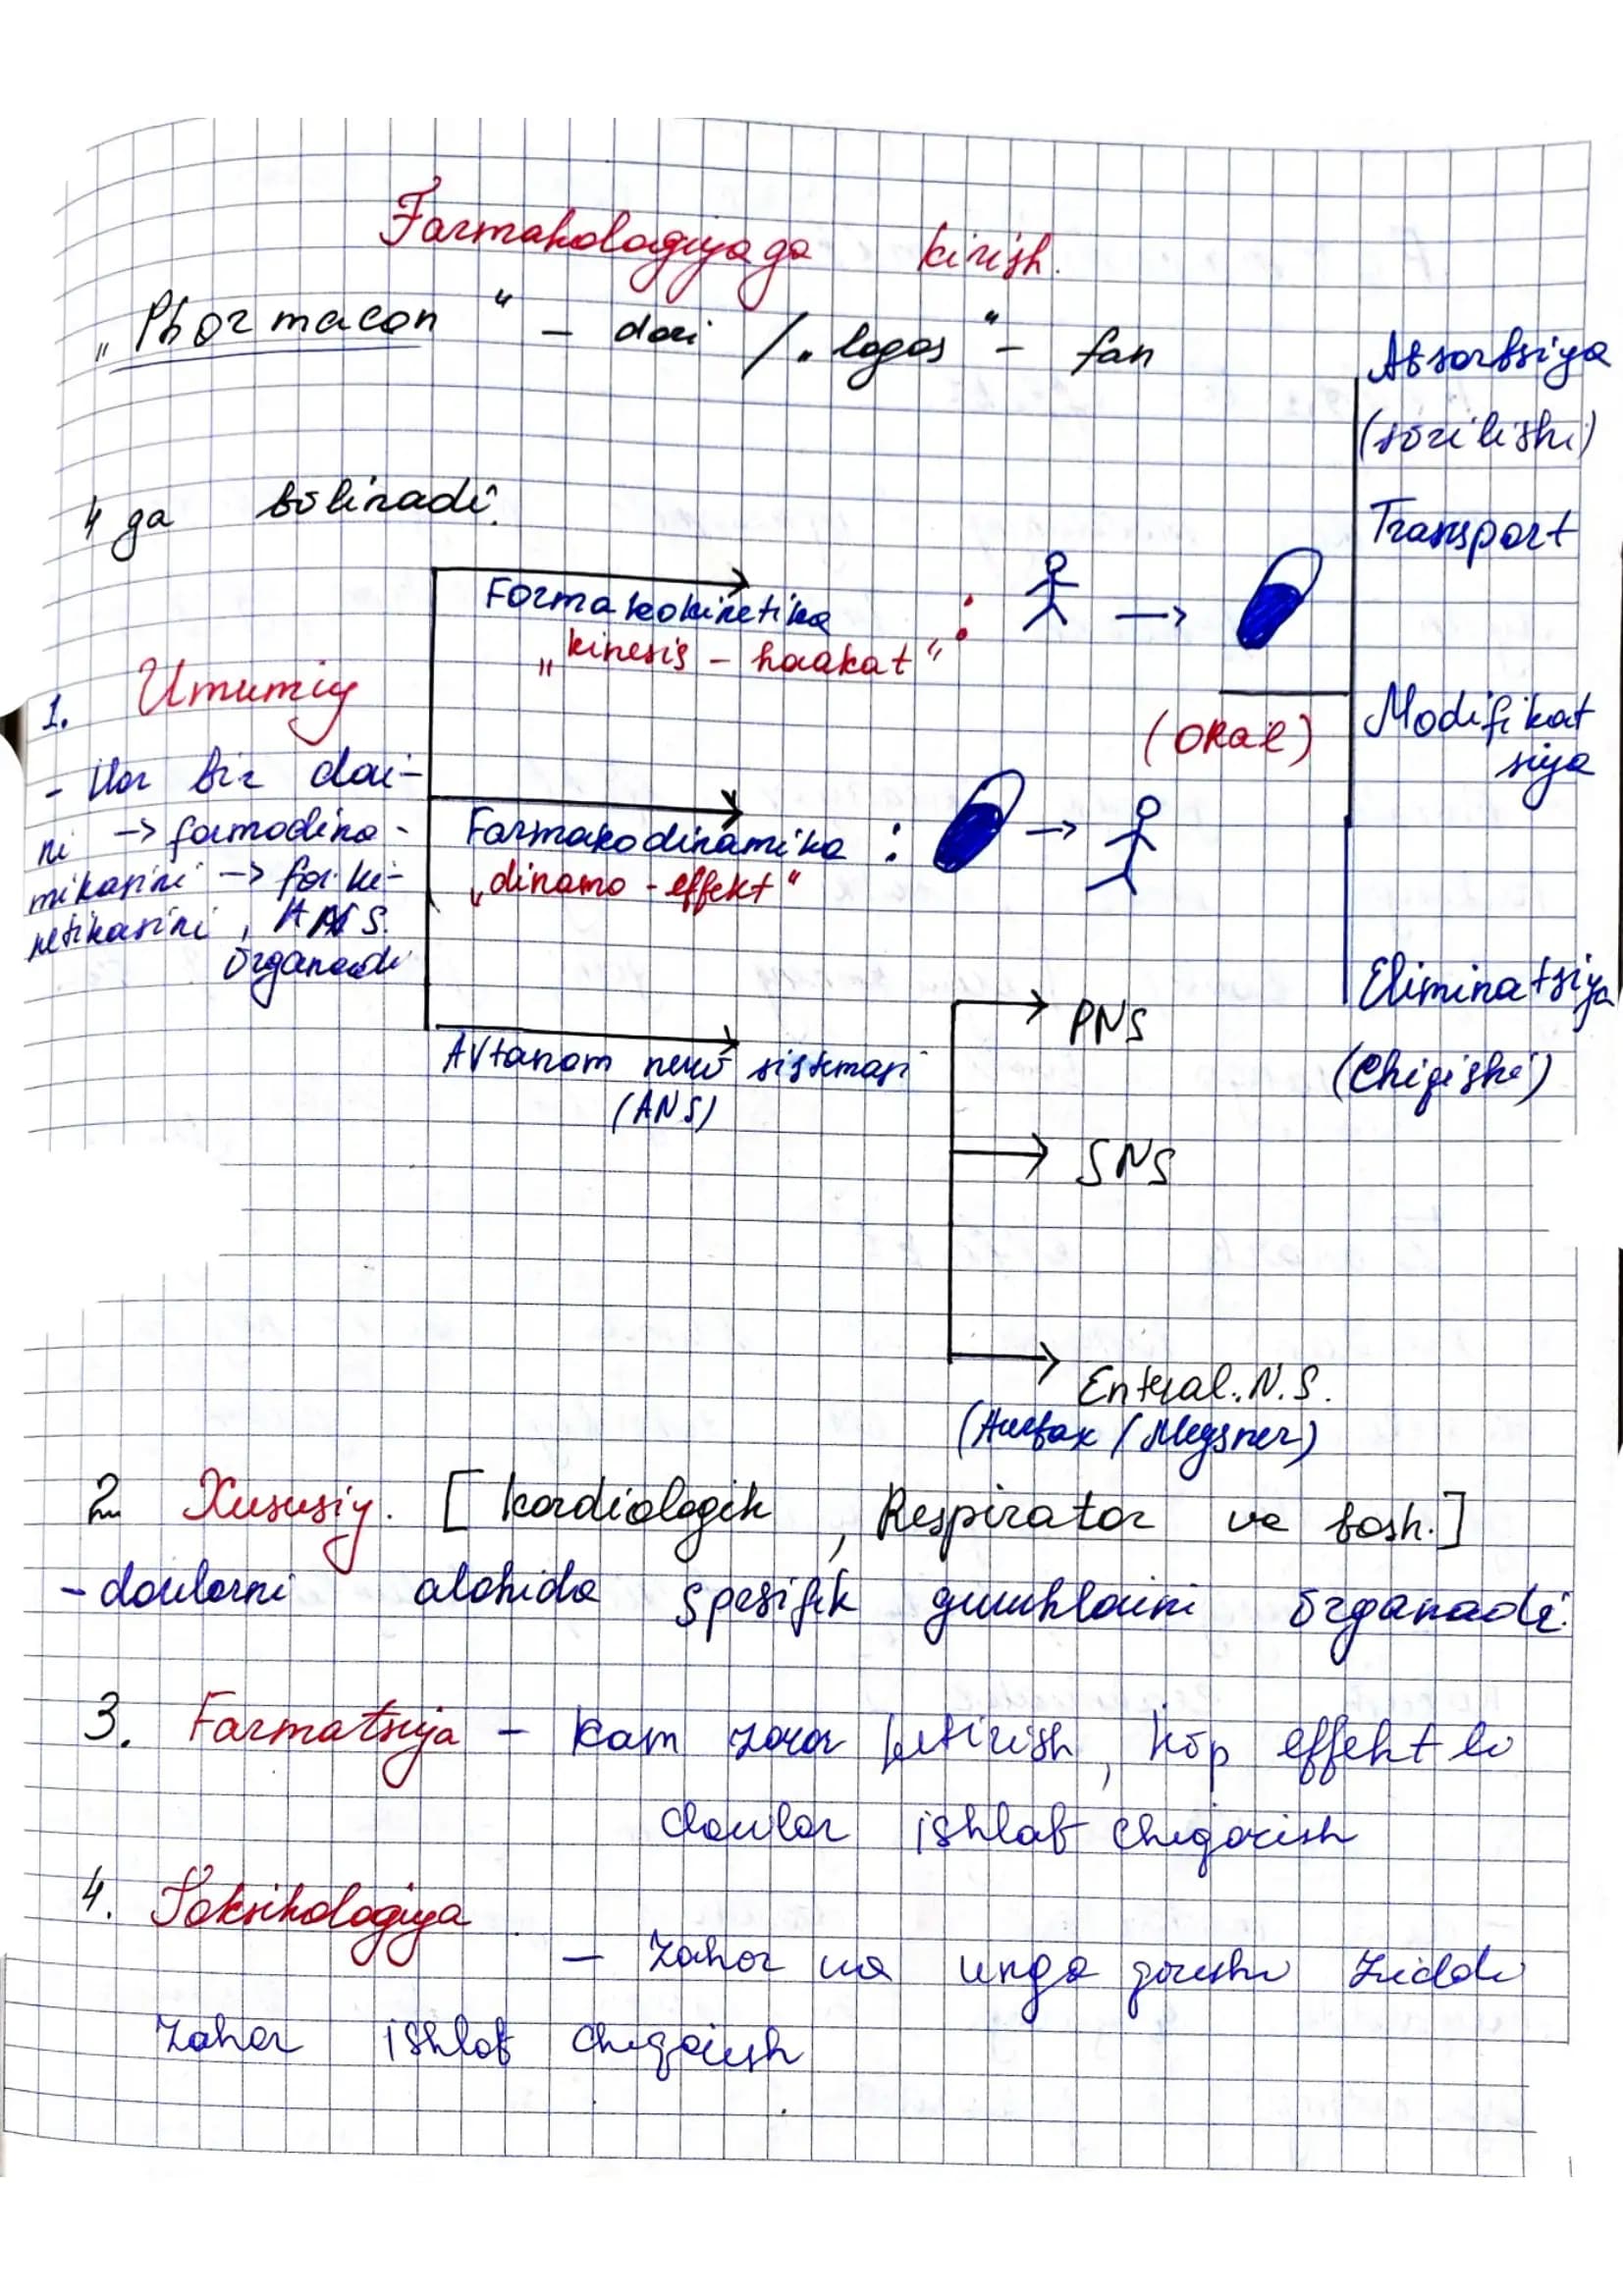 Farmakologiyaga kirish.
„Pharmacon" – dori / „logos" – fan
4 ga bölinadi.
Absorbsiya
(sörilishi)
Transport
Modifikat
siya
Eliminatsiya
(Chiqishi)
Farmakokinetika :
„kinesis – harakat"
(ORal)
1. Umumiy
- Har bir dori-
ni -> farmodina-
mikasini -> far.ki-
netikasini, ANS.
örganadi
Farmakodinamika :
„dinamo - effekt"
Avtanom nerv sistemasi
(ANS)
PNS
SNS
Enteral. N.S.
(Auerbax / Meysner)
2. Xususiy. [kardiologik, Respirator va bosh.]
- dorilarni alohida spesifik guruhlarini örganadi.
3. Farmatsiya – kam zarar keltirish, köp effektli
dorilar ishlab chiqarish
4. Toksikologiya
– Zahar va unga qarshi ziddi
zahar ishlab chiqarish